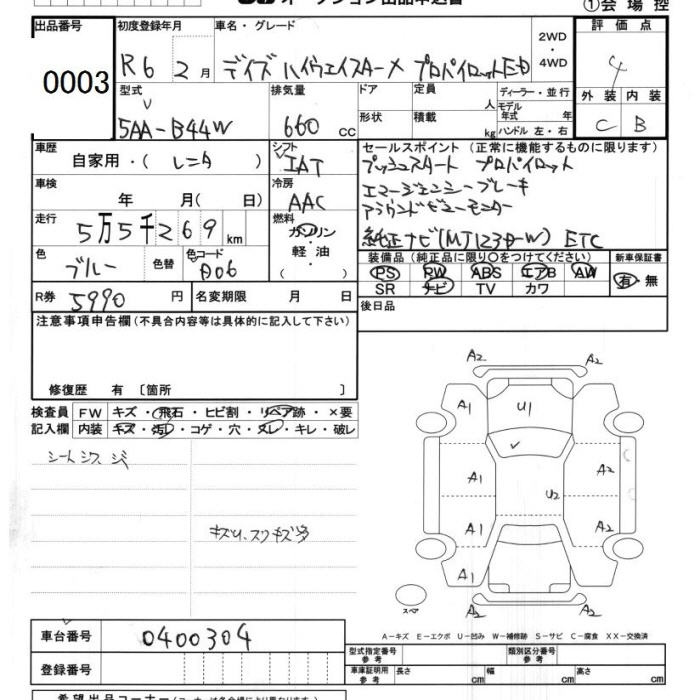 ①会場控
出品番号 初度登録年月 車名・グレード 2WD・4WD 評価点
0003 R6 2月 デイズ ハイウェイスターX プロパイロットED 4
型式 排気量 ドア 定員 人 ディーラー・並行 外装 内装
5AA-B44W 660cc 形状 積載 kg モデル年式 年 ハンドル 左・右 C B
車歴 自家用・( レンタ ) シフト IAT
セールスポイント(正常に機能するものに限ります)
プッシュスタート プロパイロット
車検 年 月( 日) 冷房 AAC
エマージェンシーブレーキ
アラウンドビューモニター
走行 5万5千269km 燃料 ガソリン・軽油・( )
純正ナビ(MJ123D-W) ETC
色 ブルー 色替 色コード
装備品(純正品に限り○をつけてください) 新車保証書
PS PW ABS エアB AW 有・無
SR ナビ TV カワ
R券 5990円 名変期限 月 日
後日品
注意事項申告欄(不具合内容等は具体的に記入して下さい)
修復歴 有 [箇所 ]
検査員記入欄 FW キズ・飛石・ヒビ割・リペア跡・×要
内装 キズ・汚れ・コゲ・穴・スレ・キレ・破レ
シート
A2 A2
A1 U1 A1
A1 A2
U2
A1 A2
A1
スペア
A-キズ E-エクボ U-凹み W-補修跡 S-サビ C-腐食 XX-交換済
車台番号 0400304
登録番号
型式指定番号 参考 類別区分番号 参考
車庫証明用 参考 長さ cm 幅 cm 高さ cm